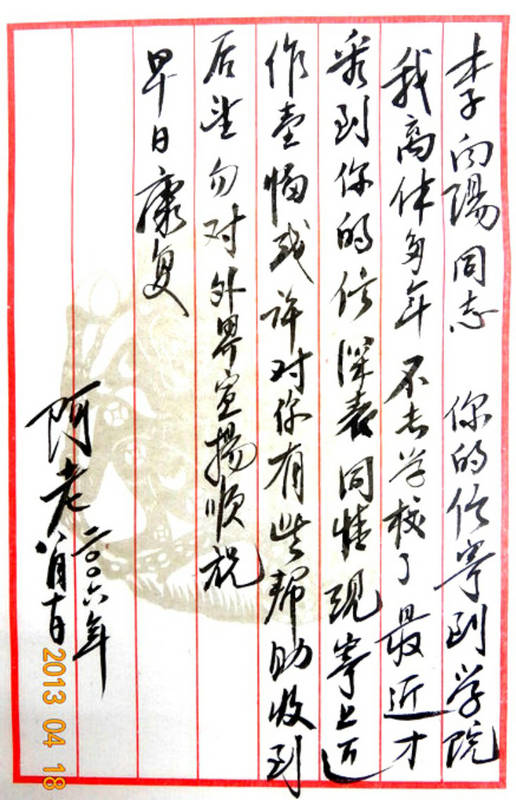 李向陽同志 你的信寄到学院
我离休多年不去学校了最近才
看到你的信深表同情现寄上近
作壹幅或许对你有些帮助收到
后望勿对外界宣揚顺祝
早日康复
阿老二〇〇六年
八月
2013 04 18